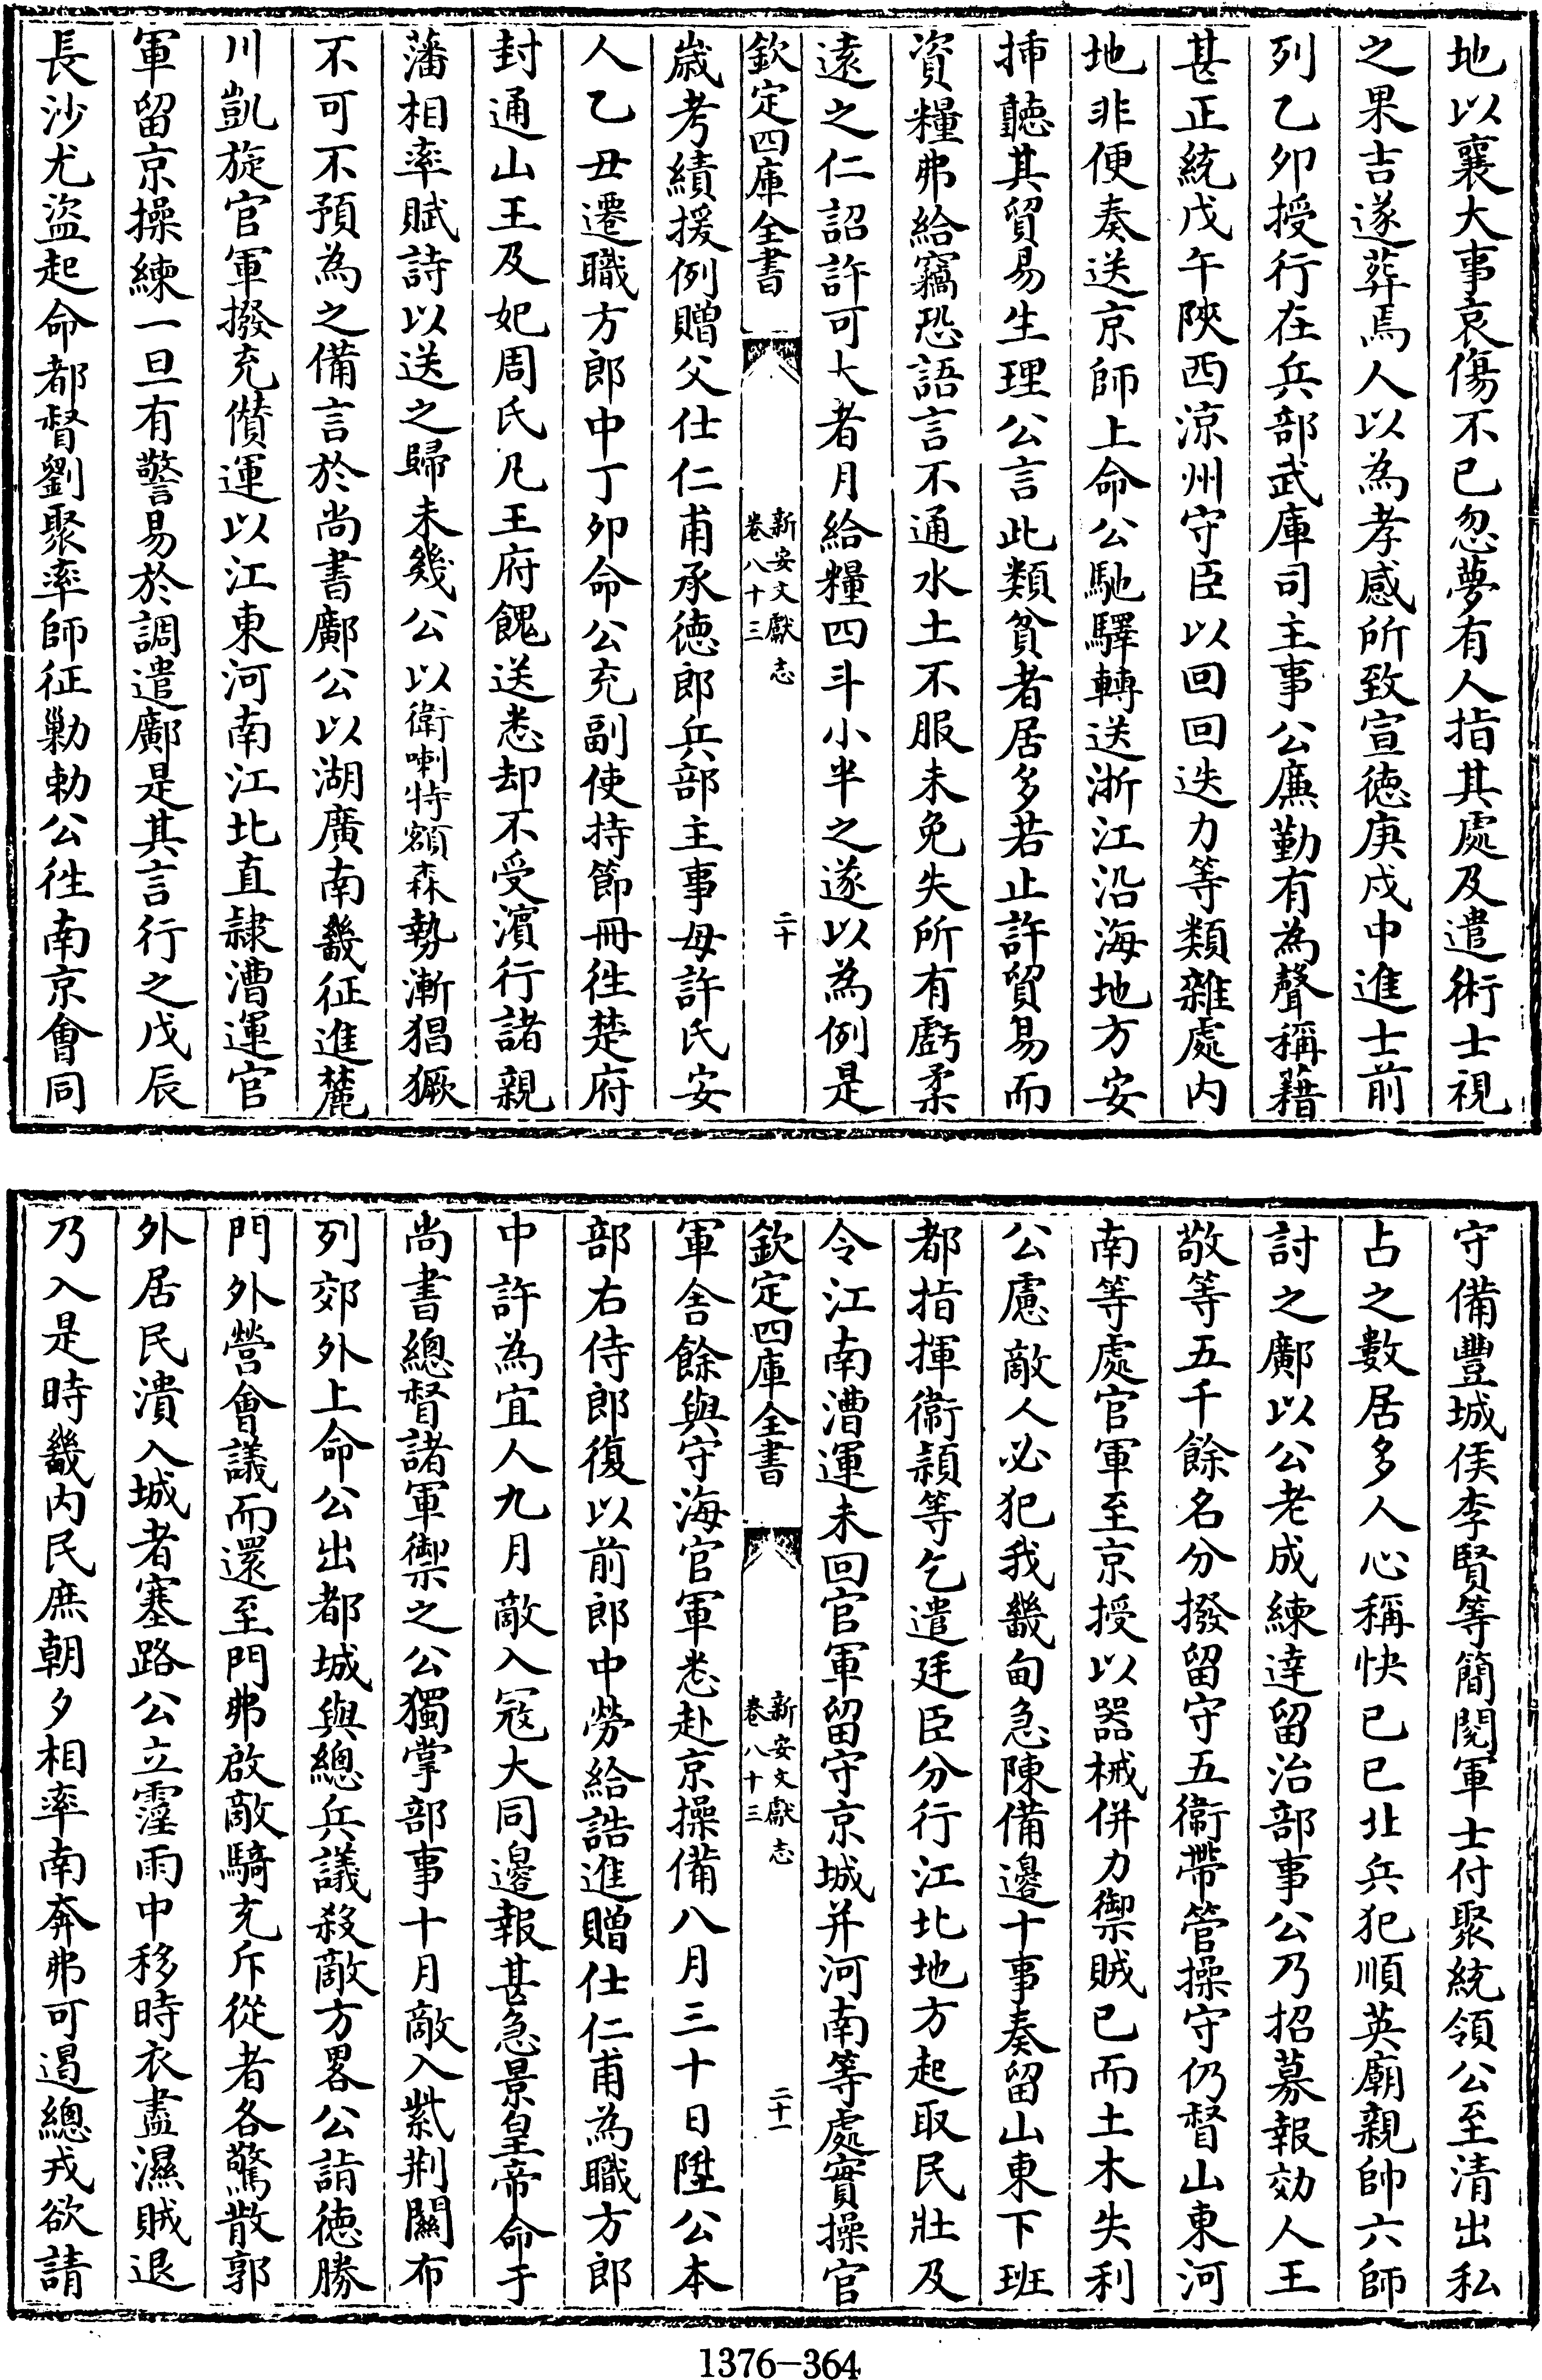 地以襄大事哀傷不已忽夢有人指其處及遣術士視
之果吉遂葬焉人以為孝感所致宣徳庚戌中進士前
列乙卯授行在兵部武庫司主事公廉勤有為聲稱藉
甚正統戊午陜西涼州守臣以回回迭力等類雜處内
地非便奏送京師上命公馳驛轉送浙江沿海地方安
揷聽其貿易生理公言此類貧者居多若止許貿易而
資糧弗給竊恐語言不通水土不服未免失所有虧柔
遠之仁詔許可大者月給糧四斗小半之遂以為例是
欽定四庫全書
新安文獻志
卷八十三
二十
嵗考績援例贈父仕仁甫承徳郎兵部主事母許氏安
人乙丑遷職方郎中丁卯命公充副使持節冊徃楚府
封通山王及妃周氏凡王府餽送悉却不受濵行諸親
藩相率賦詩以送之歸未幾公以衛喇特額森勢漸猖獗
不可不預為之備言於尚書鄺公以湖廣南畿征進麓
川凱旋官軍撥充儹運以江東河南江北直隷漕運官
軍留京操練一旦有警易於調遣鄺是其言行之戊辰
長沙尤盜起命都督劉聚率師征勦勅公徃南京會同
守備豐城侯李賢等簡閱軍士付聚統領公至清出私
占之數居多人心稱快已巳北兵犯順英廟親帥六師
討之鄺以公老成練達留治部事公乃招募報効人王
敬等五千餘名分撥留守五衞帶管操守仍督山東河
南等處官軍至京授以器械併力禦賊已而土木失利
公慮敵人必犯我畿甸急陳備邊十事奏留山東下班
都指揮衞頴等乞遣廷臣分行江北地方起取民壯及
令江南漕運未回官軍留守京城并河南等處實操官
欽定四庫全書
新安文獻志
卷八十三
二十一
軍舍餘與守海官軍悉赴京操備八月三十日陞公本
部右侍郎復以前郎中勞給誥進贈仕仁甫為職方郎
中許為宜人九月敵入冦大同邊報甚急景皇帝命于
尚書總督諸軍禦之公獨掌部事十月敵入紫荆關布
列郊外上命公出都城與總兵議殺敵方畧公詣徳勝
門外營會議而還至門弗啟敵騎充斥從者各驚散郭
外居民潰入城者塞路公立霪雨中移時衣盡濕賊退
乃入是時畿内民庶朝夕相率南奔弗可遏總戎欲請
1376-364